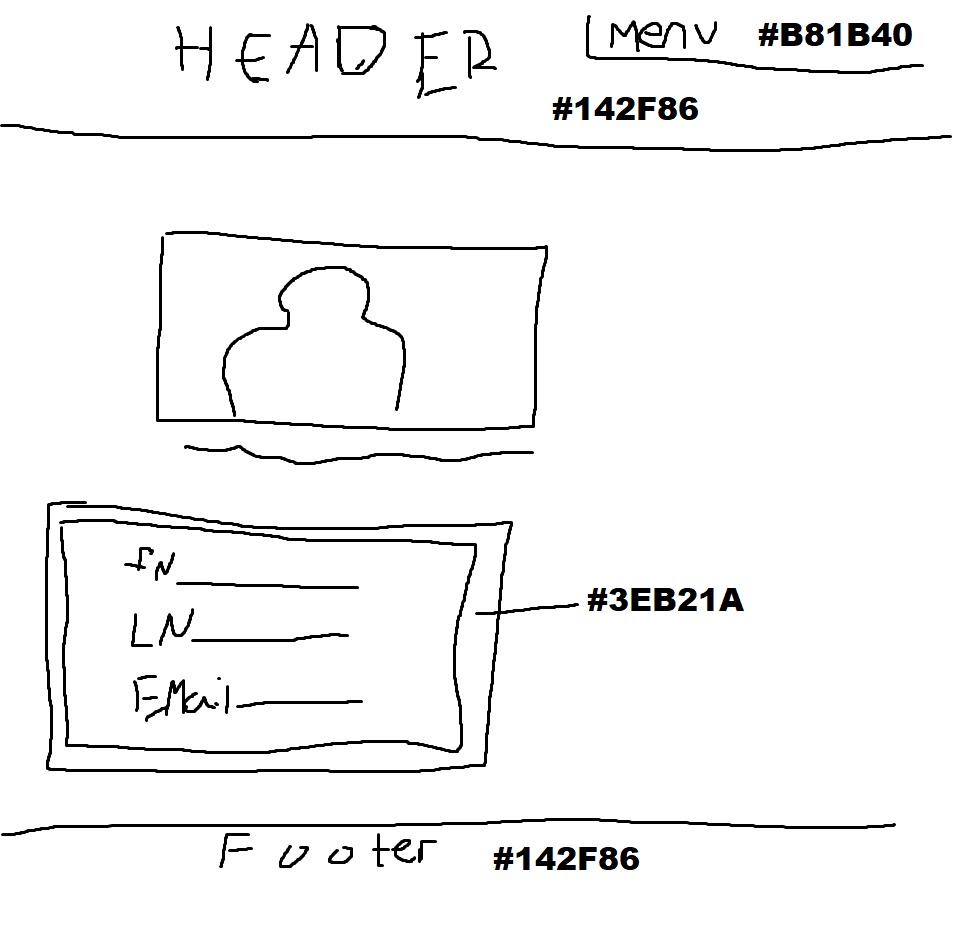 HEADER Menu #B81B40
#142F86
FN
LN
EMail
#3EB21A
Footer #142F86